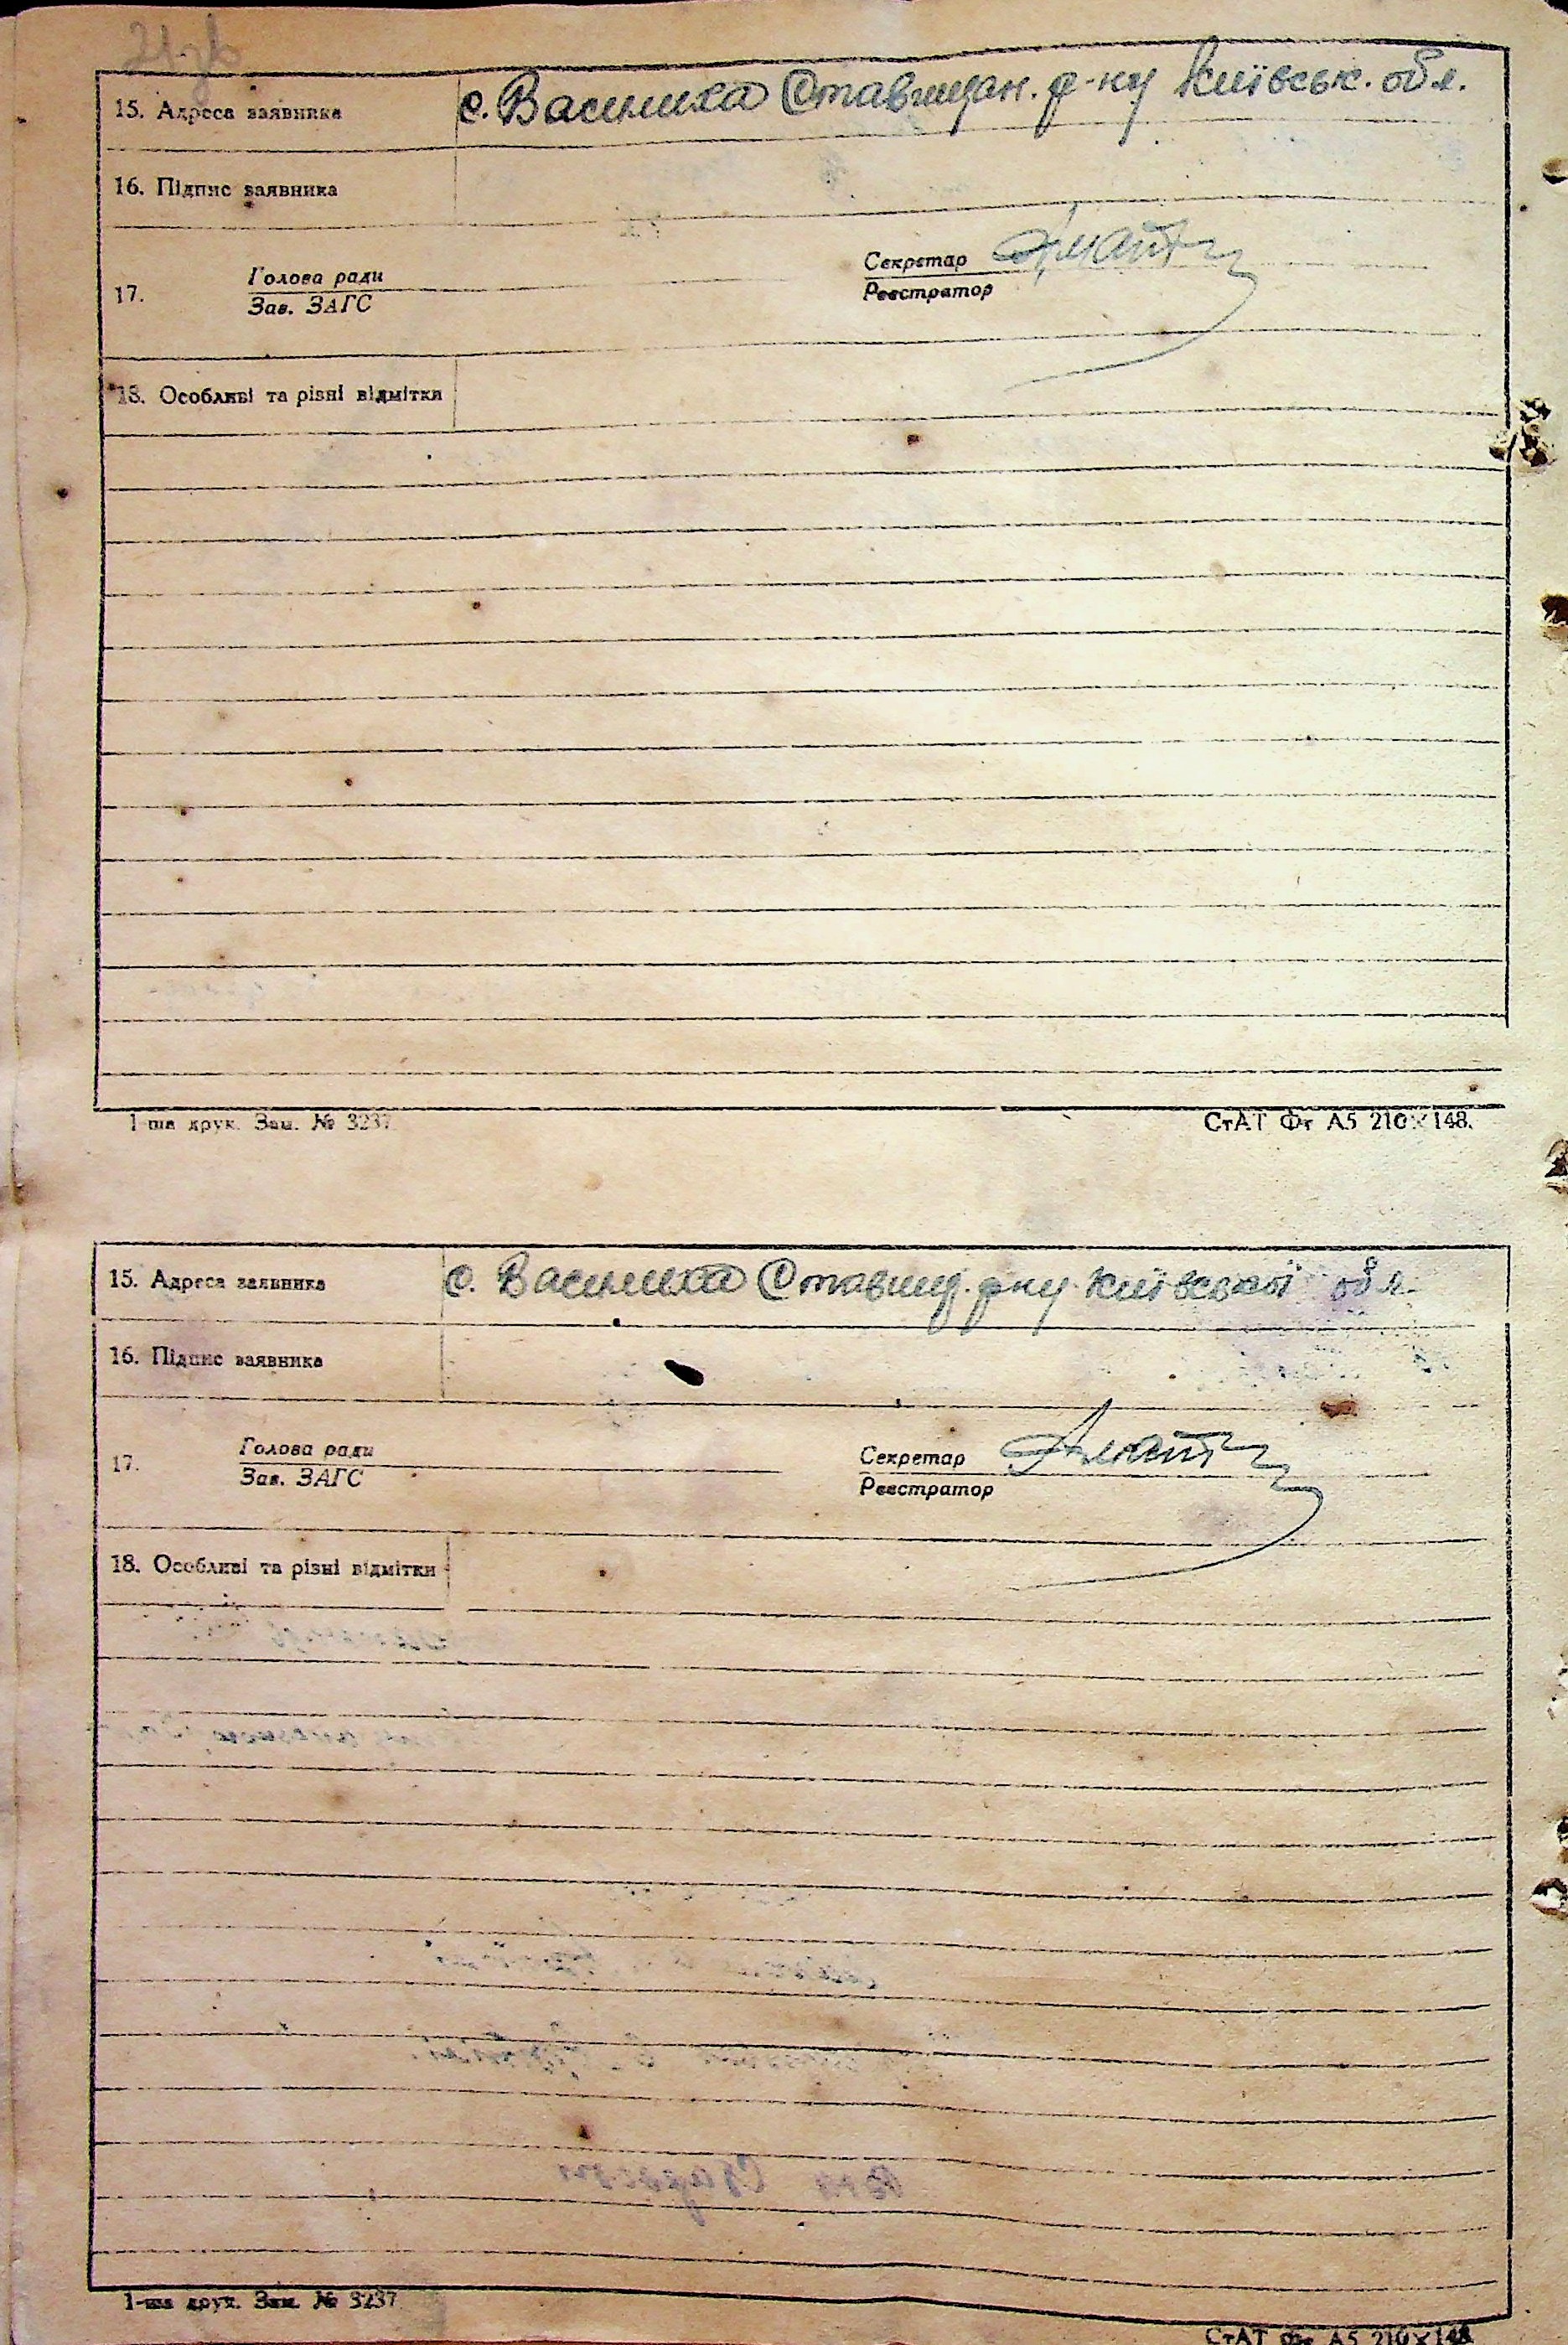 21зв
15. Адреса заявника с. Василиха Ставищан. р-ну Київськ. обл.
16. Підпис заявника
17. Голова ради Секретар
Зав. ЗАГС Реєстратор
18. Особливі та різні відмітки
1-ша друк. Зам. № 3237 СтАТ Фт А5 210×148.
15. Адреса заявника с. Василиха Ставищ. р-ну Київської обл.
16. Підпис заявника
17. Голова ради Секретар
Зав. ЗАГС Реєстратор
18. Особливі та різні відмітки
1-ша друк. Зам. № 3237
СтАТ Фт А5 210×148